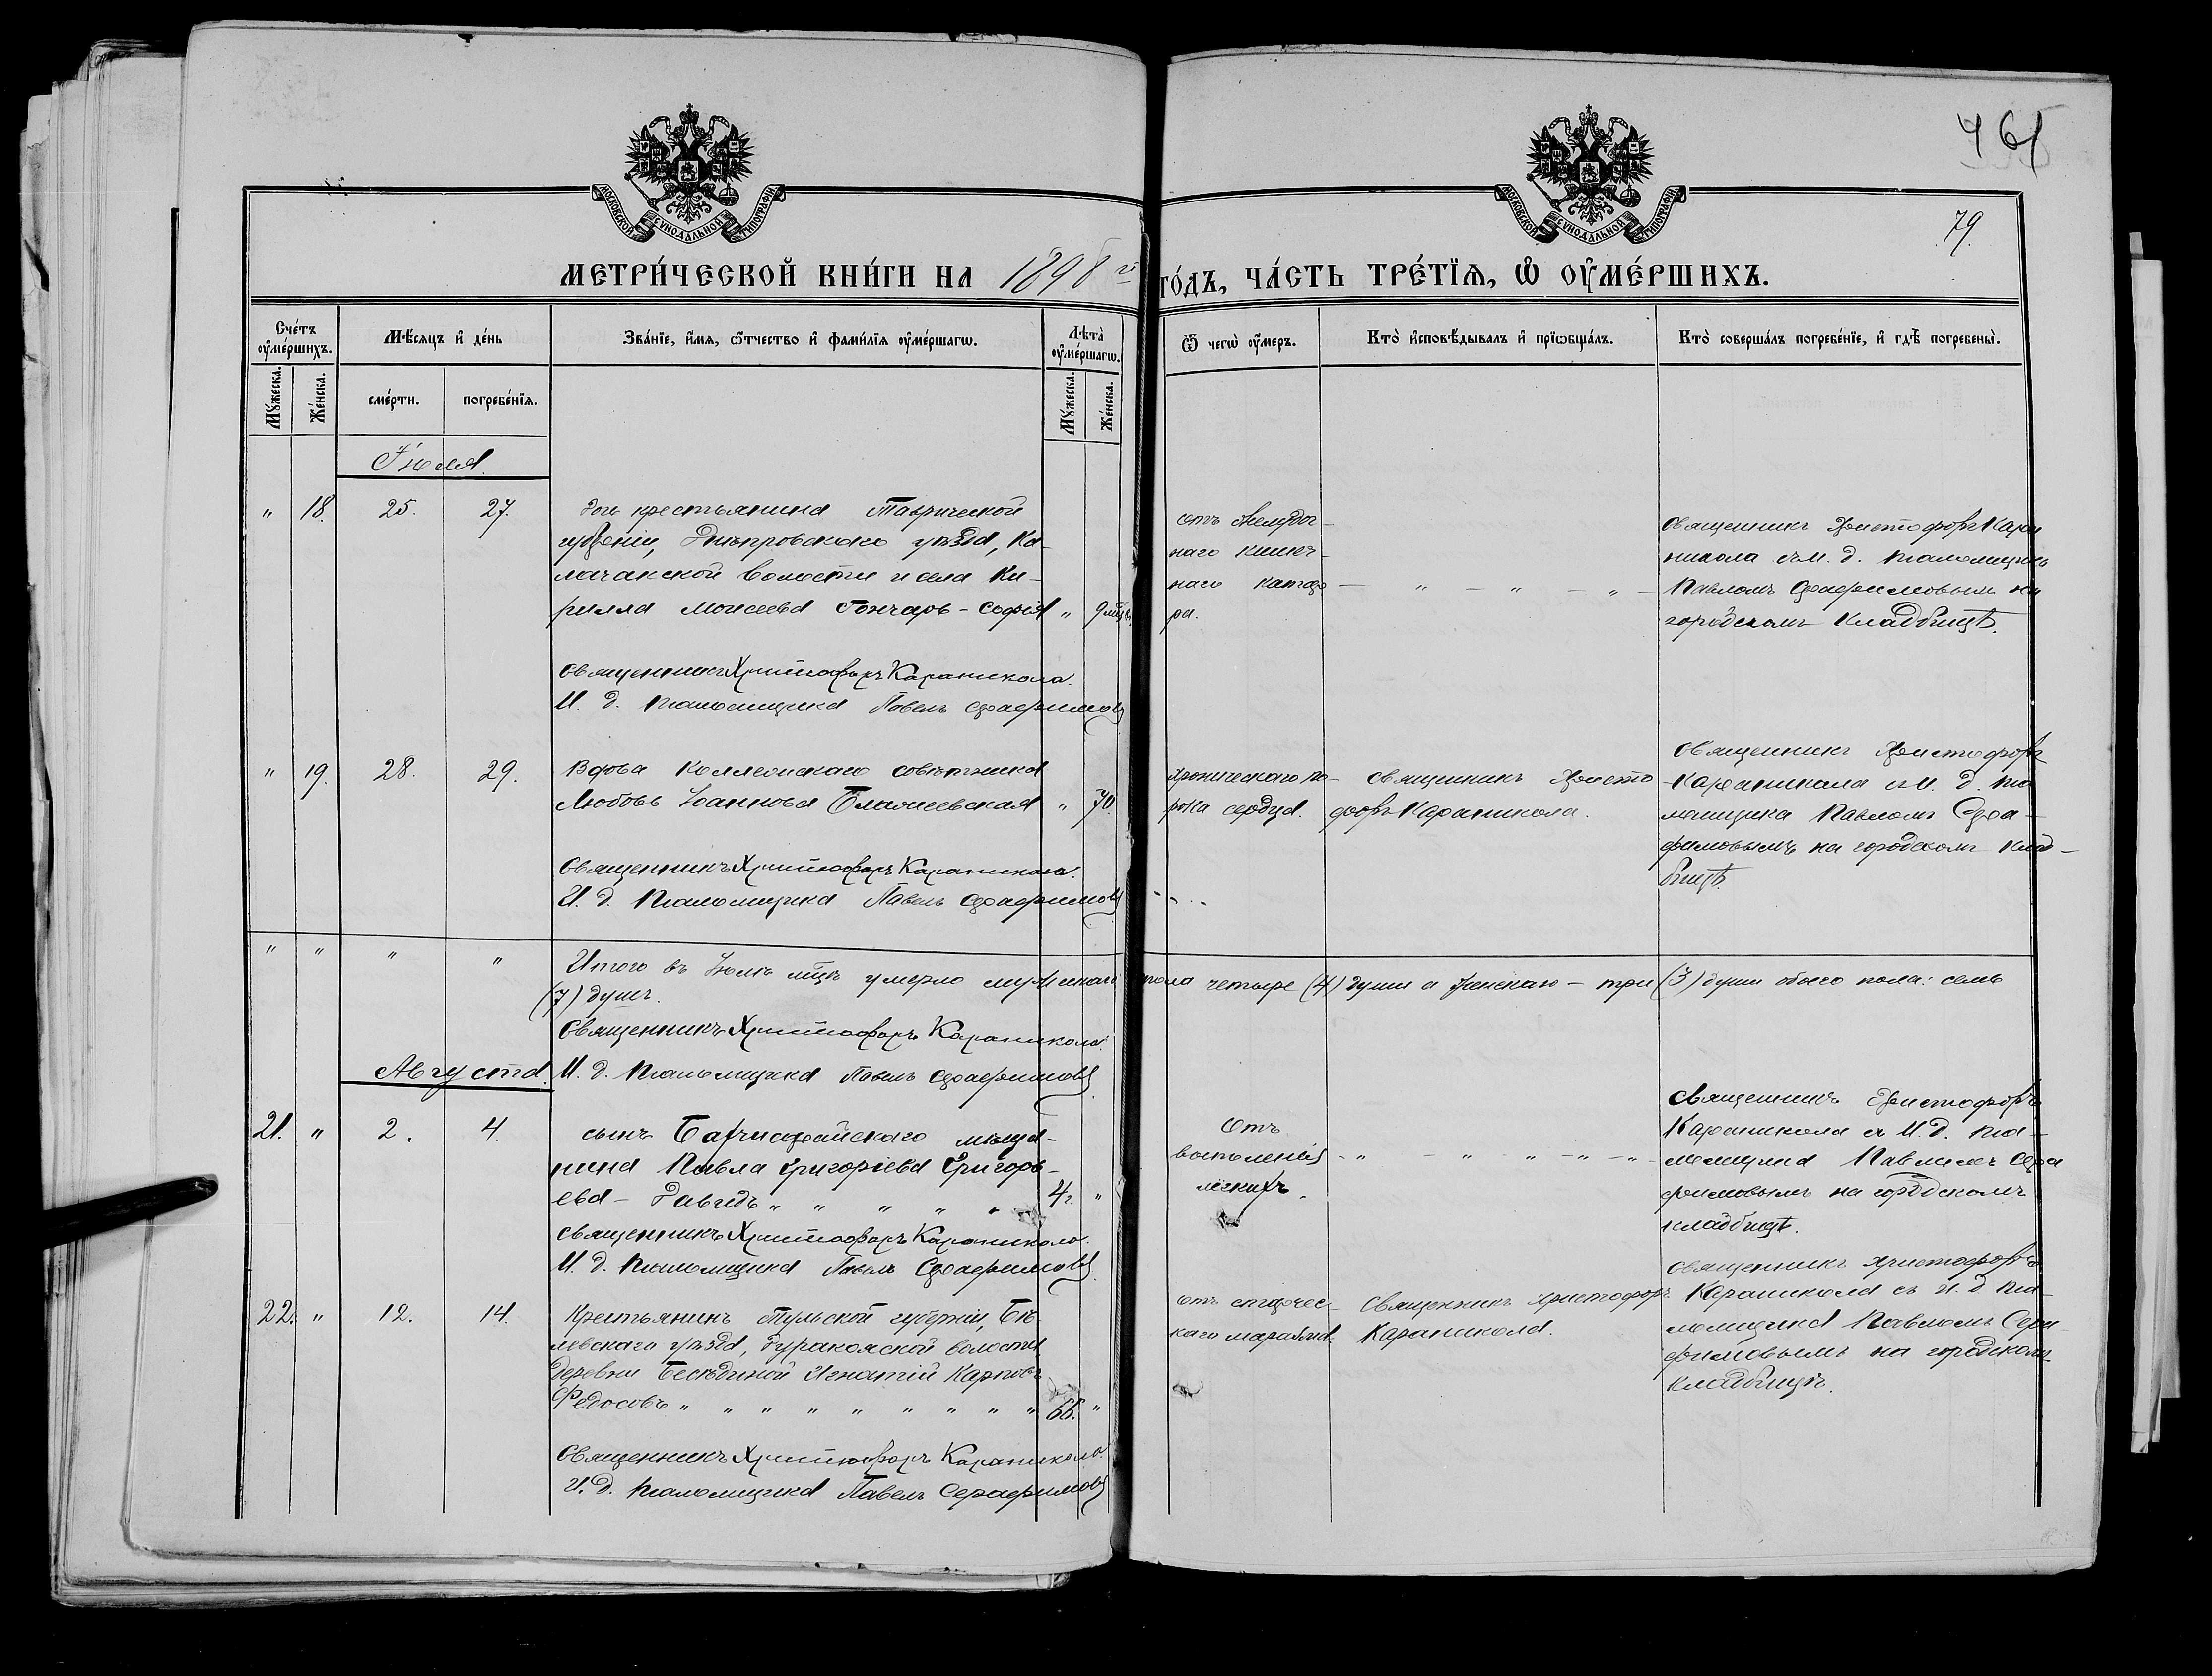 461
79.
МОСКОВСКОЙ СѴНОДАЛЬНОЙ ТИПОГРАФІИ
МОСКОВСКОЙ СѴНОДАЛЬНОЙ ТИПОГРАФІИ
МЕТРИ́ЧЕСКОЙ КНИ́ГИ НА 1898 й ГО́ДЪ, ЧА́СТЬ ТРЕ́ТЇѦ, Ѡ҆ ОУ҆МЕ́РШИХЪ.
Сче́тъ оу҆ме́ршихъ.
Мѣ́сѧцъ и҆ де́нь
Зва́нїе, и҆́мѧ, ѻ҆́тчество и҆ фами́лїѧ оу҆ме́ршагѡ.
Лѣ̑та̀ оу҆ме́ршагѡ.
Ѿ чегѡ̀ оу҆́меръ.
Кто̀ и҆сповѣ́дывалъ и҆ прїѡбща́лъ.
Кто̀ соверша́лъ погребе́нїе, и҆ гдѣ̀ погребены̀.
Мꙋ́жеска.
Же́нска.
сме́рти.
погребе́нїѧ.
Мꙋ́жеска.
Же́нска.
Іюля.
" 18. 25. 27.
дочь крестьянина Таврической
губерніи, Днѣпровскаго уѣзда, Ка-
ланчакской волости и села Ки-
рилла Моисеева Гончарь - Софія " 9 мѣс.
Священникъ Христофоръ Караникола.
И. д. псаломщика Павелъ Серафимовъ
отъ желудоч-
наго кишеч-
наго катар-
ра.
— " — " — " —
Священникъ Христофоръ Кара
никола съ и. д. псаломщика
Павломъ Серафимовым на
городскомъ кладбищѣ.
" 19. 28. 29.
Вдова Коллежскаго совѣтника
Любовь Іоаннова " 70.
Священникъ Христофоръ Караникола.
И. д. псаломщика Павелъ Серафимовъ
хроническаго по-
рока сердца.
Священникъ Христо
форъ Караникола.
Священникъ Христофоръ
Караникола съ И. д. пса
ломщика Павломъ Сера-
фимовымъ на городскомъ клад-
бищѣ.
" " " "
Итого въ Іюлѣ мѣсяцѣ умерло мужескаго пола четыре (4) души а женскаго - три (3) души обоего пола: семь
(7) душъ.
Священникъ Христофоръ Караникола.
И. д. псаломщика Павелъ Серафимовъ
Августа.
21. " 2. 4.
сынъ Бахчисарайскаго мѣща-
нина Павла Григоріева Григорь-
ева - Давидъ " " " " " 4 г. "
Священникъ Христофоръ Караникола.
И. д. псаломщика Павелъ Серафимовъ
Отъ
воспаленія
легкихъ.
- " - " - " - " - " -
Священникъ Христофоръ
Караникола съ И. д. пса-
ломщика Павломъ Сера
фимовымъ на городскомъ
кладбищѣ.
22. " 12. 14.
Крестьянинъ Тульской губерніи, Бѣ
левскаго уѣзда, Дураковской волости
деревни Бесѣдиной Игнатій Карповъ
Федосовъ " " " " " " " " " 66. "
Священникъ Христофоръ Караникола.
И. д. псаломщика Павелъ Серафимовъ
отъ старчес-
каго маразма.
Священникъ Христофоръ
Караникола.
Священникъ Христофоръ
Караникола съ И. д. пса-
ломщика Павломъ Сера
фимовымъ на городскомъ
кладбищѣ.